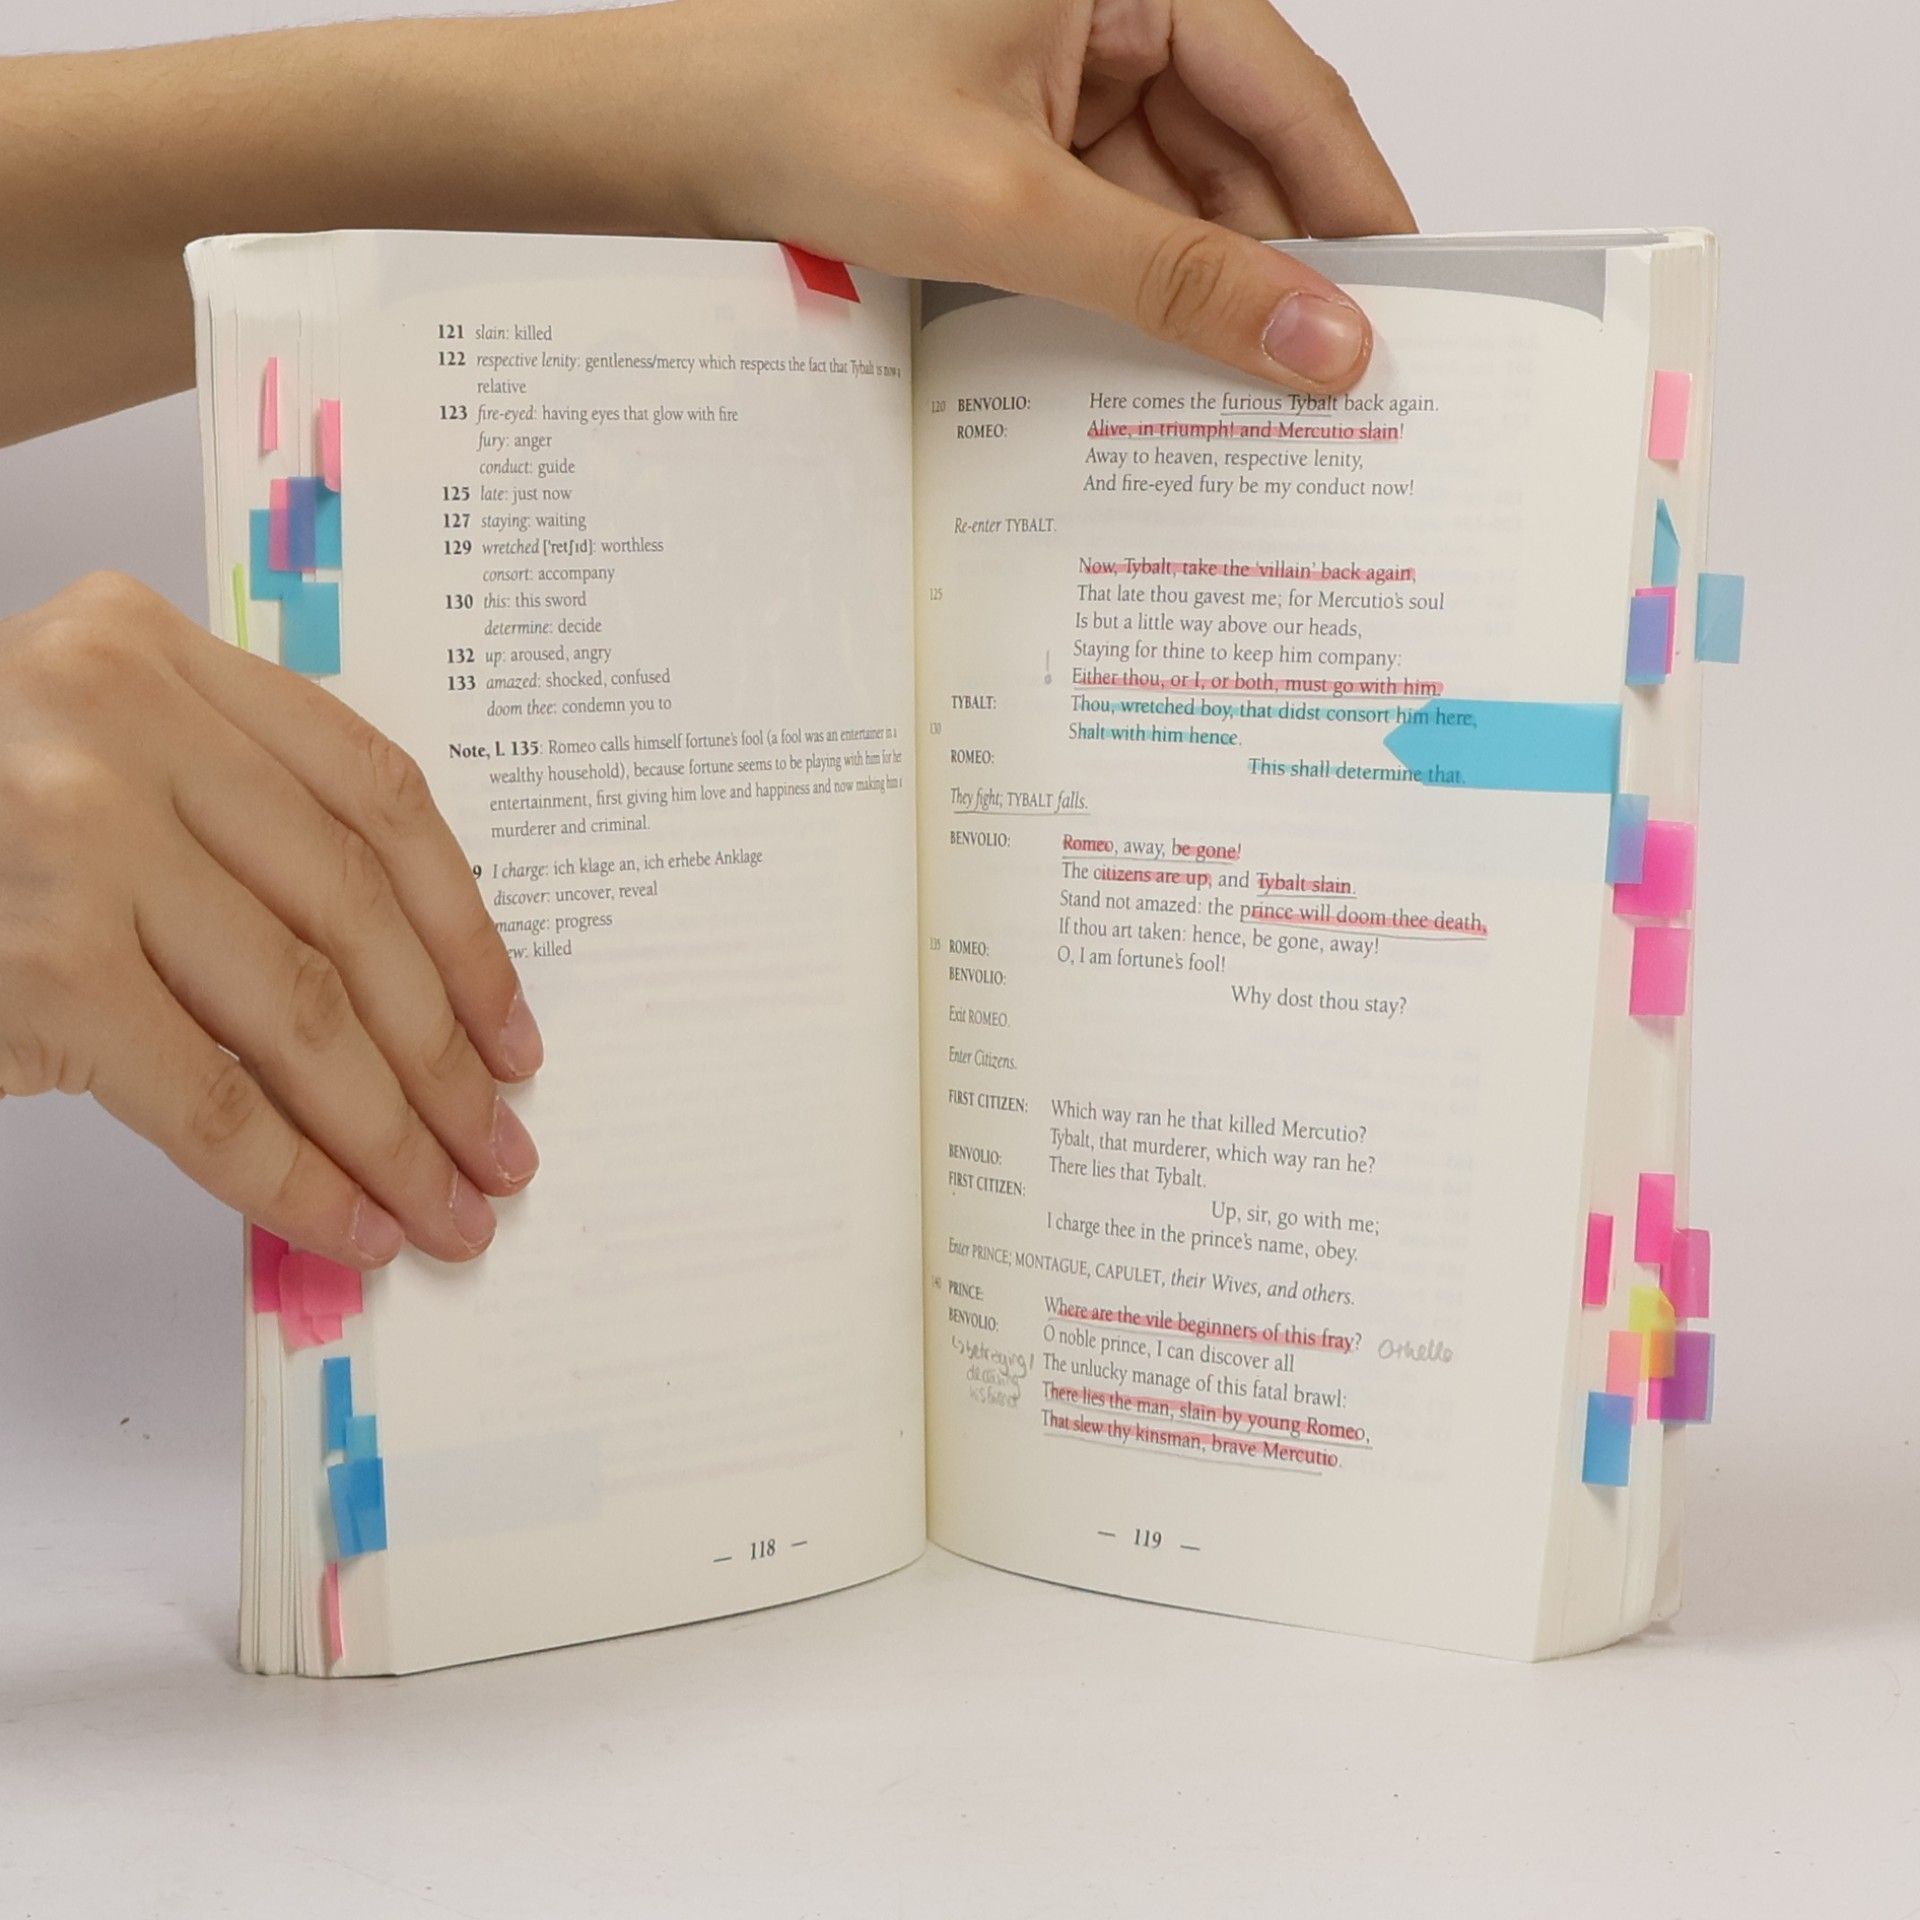 121 slain: killed
122 respective lenity: gentleness/mercy which respects the fact that Tybalt is now a
relative
123 fire-eyed: having eyes that glow with fire
fury: anger
conduct: guide
125 late: just now
127 staying: waiting
129 wretched ['retʃɪd]: worthless
consort: accompany
130 this: this sword
determine: decide
132 up: aroused, angry
133 amazed: shocked, confused
doom thee: condemn you to
Note, l. 135: Romeo calls himself fortune's fool (a fool was an entertainer in a
wealthy household), because fortune seems to be playing with him for her
entertainment, first giving him love and happiness and now making him a
murderer and criminal.
9 I charge: ich klage an, ich erhebe Anklage
discover: uncover, reveal
manage: progress
ew: killed
— 118 —
120 BENVOLIO: Here comes the furious Tybalt back again.
ROMEO: Alive, in triumph! and Mercutio slain!
Away to heaven, respective lenity,
And fire-eyed fury be my conduct now!
Re-enter TYBALT.
Now, Tybalt, take the 'villain' back again,
125 That late thou gavest me; for Mercutio's soul
Is but a little way above our heads,
Staying for thine to keep him company:
Either thou, or I, or both, must go with him.
TYBALT: Thou, wretched boy, that didst consort him here,
130 Shalt with him hence.
ROMEO: This shall determine that.
They fight; TYBALT falls.
BENVOLIO: Romeo, away, be gone!
The citizens are up, and Tybalt slain.
Stand not amazed: the prince will doom thee death,
If thou art taken: hence, be gone, away!
135 ROMEO: O, I am fortune's fool!
BENVOLIO: Why dost thou stay?
Exit ROMEO.
Enter Citizens.
FIRST CITIZEN: Which way ran he that killed Mercutio?
Tybalt, that murderer, which way ran he?
BENVOLIO: There lies that Tybalt.
FIRST CITIZEN: Up, sir, go with me;
I charge thee in the prince's name, obey.
Enter PRINCE; MONTAGUE, CAPULET, their Wives, and others.
140 PRINCE: Where are the vile beginners of this fray? Othello
BENVOLIO: O noble prince, I can discover all
betraying! The unlucky manage of this fatal brawl:
There lies the man, slain by young Romeo,
That slew thy kinsman, brave Mercutio.
— 119 —